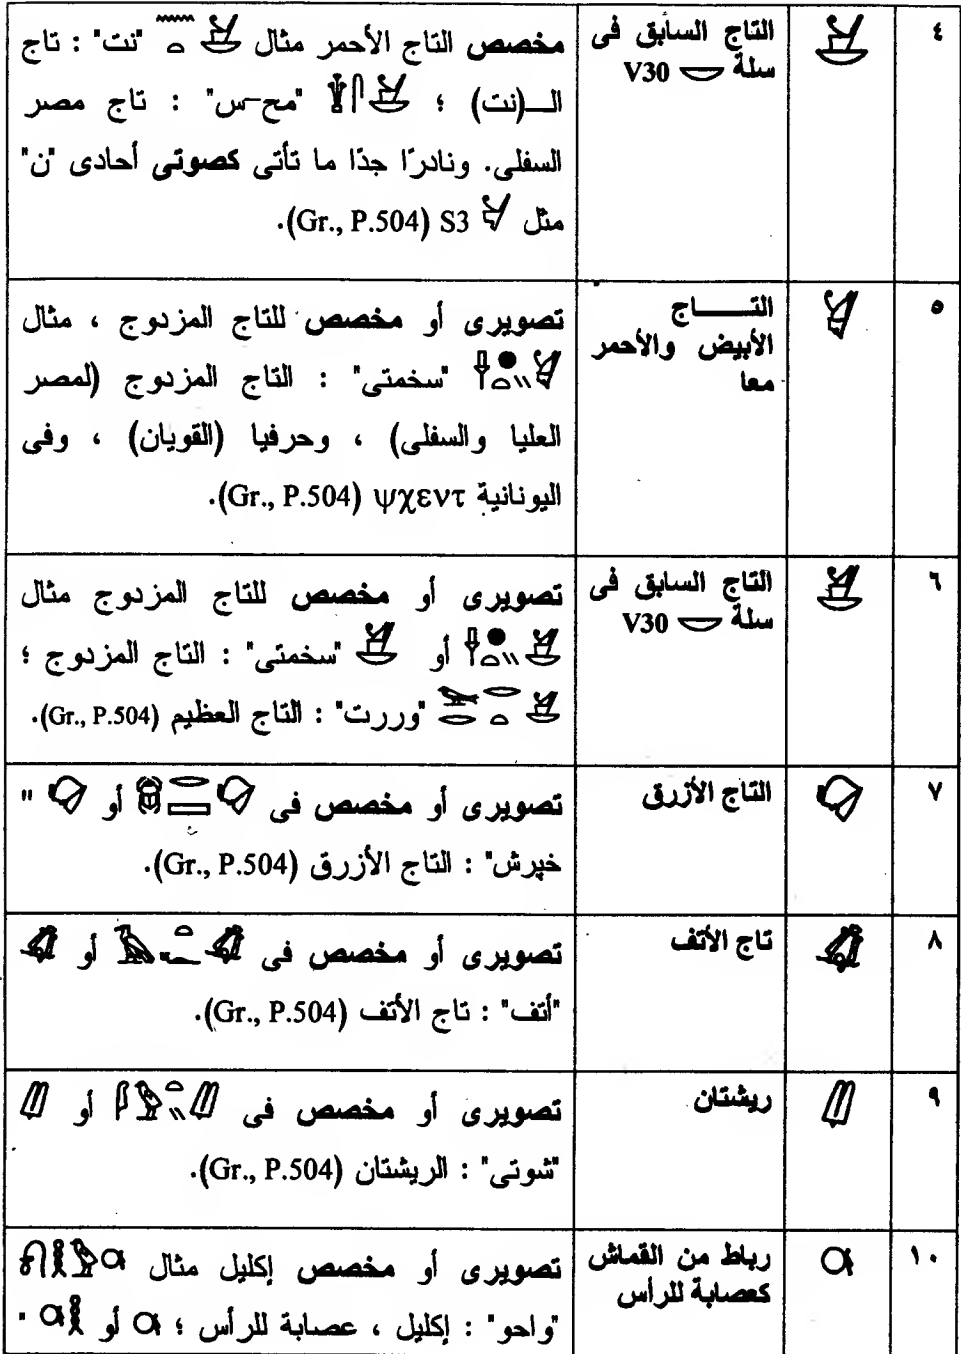 ٤ التاج السابق فى مخصص التاج الأحمر مثال "نت" : تاج
سلة V30 الـ(نت) ؛ "مح-س" : تاج مصر
السفلى. ونادرًا جدًا ما تأتى كصوتى أحادى "ن"
مثل S3 (Gr., P.504).
٥ التـــاج تصويرى أو مخصص للتاج المزدوج ، مثال
الأبيض والأحمر "سخمتى" : التاج المزدوج (لمصر
معا العليا والسفلى) ، وحرفيا (القويان) ، وفى
اليونانية ψχεντ (Gr., P.504).
٦ التاج السابق فى تصويرى أو مخصص للتاج المزدوج مثال
سلة V30 أو "سخمتى" : التاج المزدوج ؛
"وررت" : التاج العظيم (Gr., P.504).
٧ التاج الأزرق تصويرى أو مخصص فى أو "
خپرش" : التاج الأزرق (Gr., P.504).
٨ تاج الأتف تصويرى أو مخصص فى أو
"أتف" : تاج الأتف (Gr., P.504).
٩ ريشتان تصويرى أو مخصص فى أو
"شوتى" : الريشتان (Gr., P.504).
١٠ رباط من القماش تصويرى أو مخصص إكليل مثال
كعصابة للرأس "واحو" : إكليل ، عصابة للرأس ؛ أو "